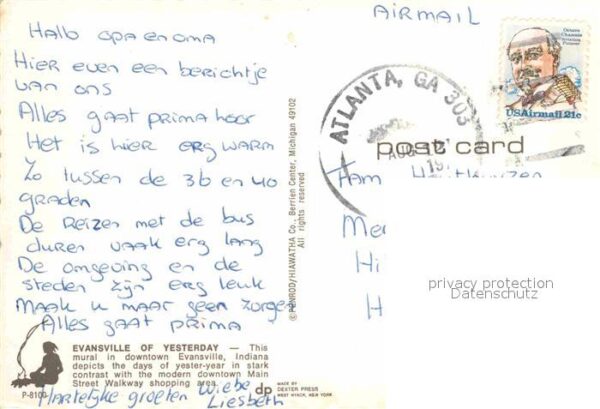 AIRMAIL
Octave Chanute
Aviation Pioneer
USAirmail 21c
ATLANTA, GA 303
AUG
post card
Hallo opa en oma
Hier even een berichtje
van ons
Alles gaat prima hoor
Het is hier erg warm
Zo tussen de 36 en 40
graden
De Reizen met de bus
duren vaak erg lang
De omgeving en de
steden zijn erg leuk
Maak u maar geen zorgen
Alles gaat prima
Hartelijke groeten Wiebe
Liesbeth
©PENROD/HIAWATHA Co., Berrien Center, Michigan 49102
All rights reserved
Fam
privacy protection
Datenschutz
EVANSVILLE OF YESTERDAY — This
mural in downtown Evansville, Indiana
depicts the days of yester-year in stark
contrast with the modern downtown Main
Street Walkway shopping area.
P-8100
dp
MADE BY
DEXTER PRESS
WEST NYACK, NEW YORK